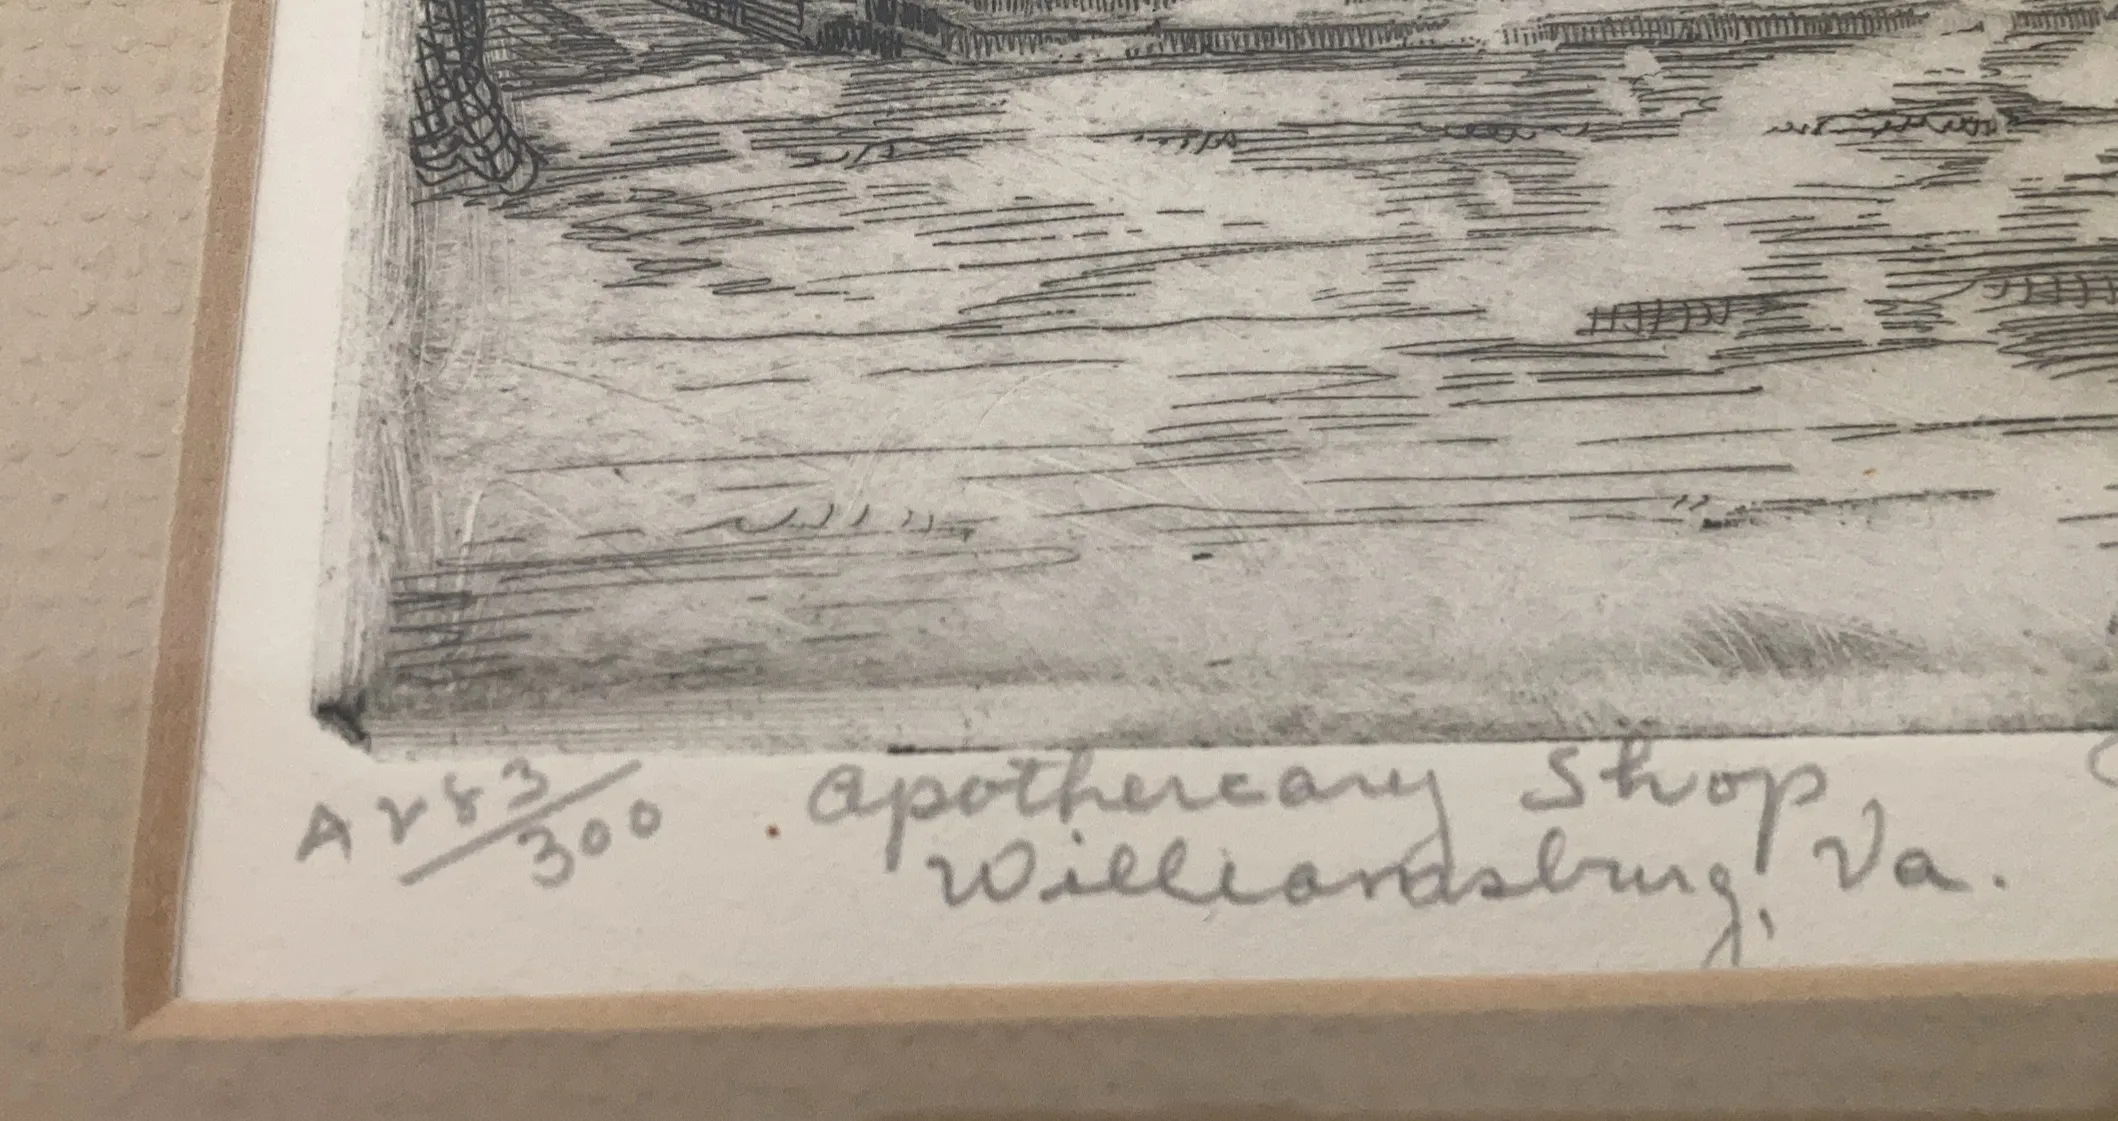 A 283/300
Apothecary Shop,
Williamsburg, Va.